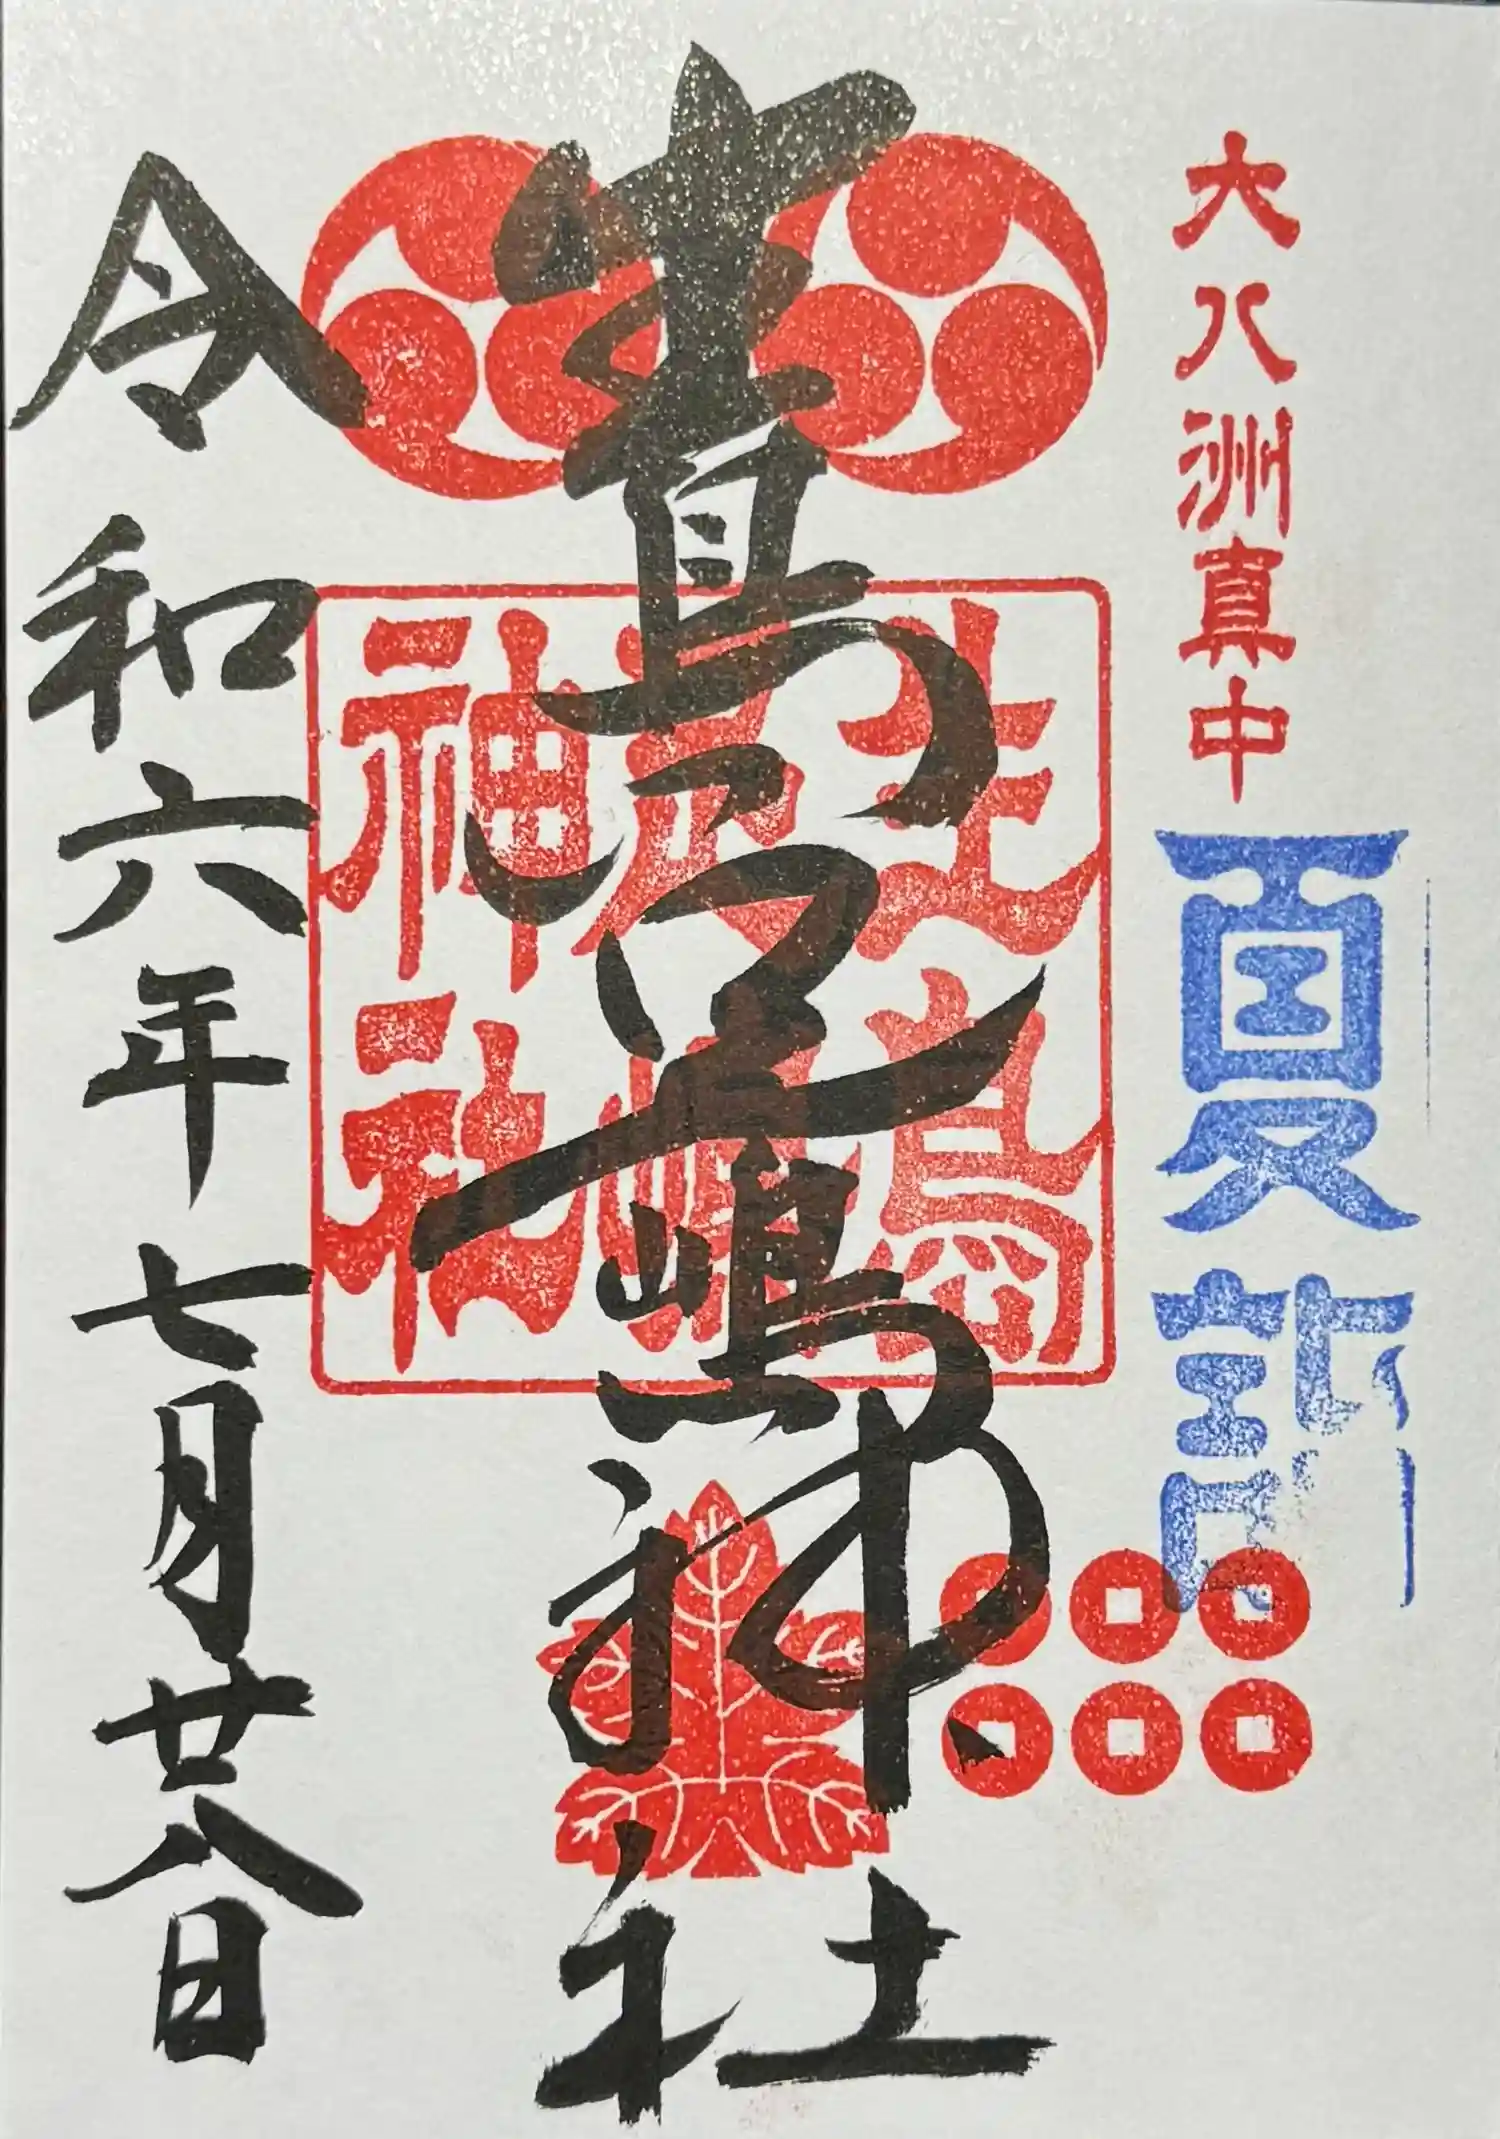 大八洲真中
夏詣
生島足嶌神社
生島足嶋神社
令和六年七月廿八日